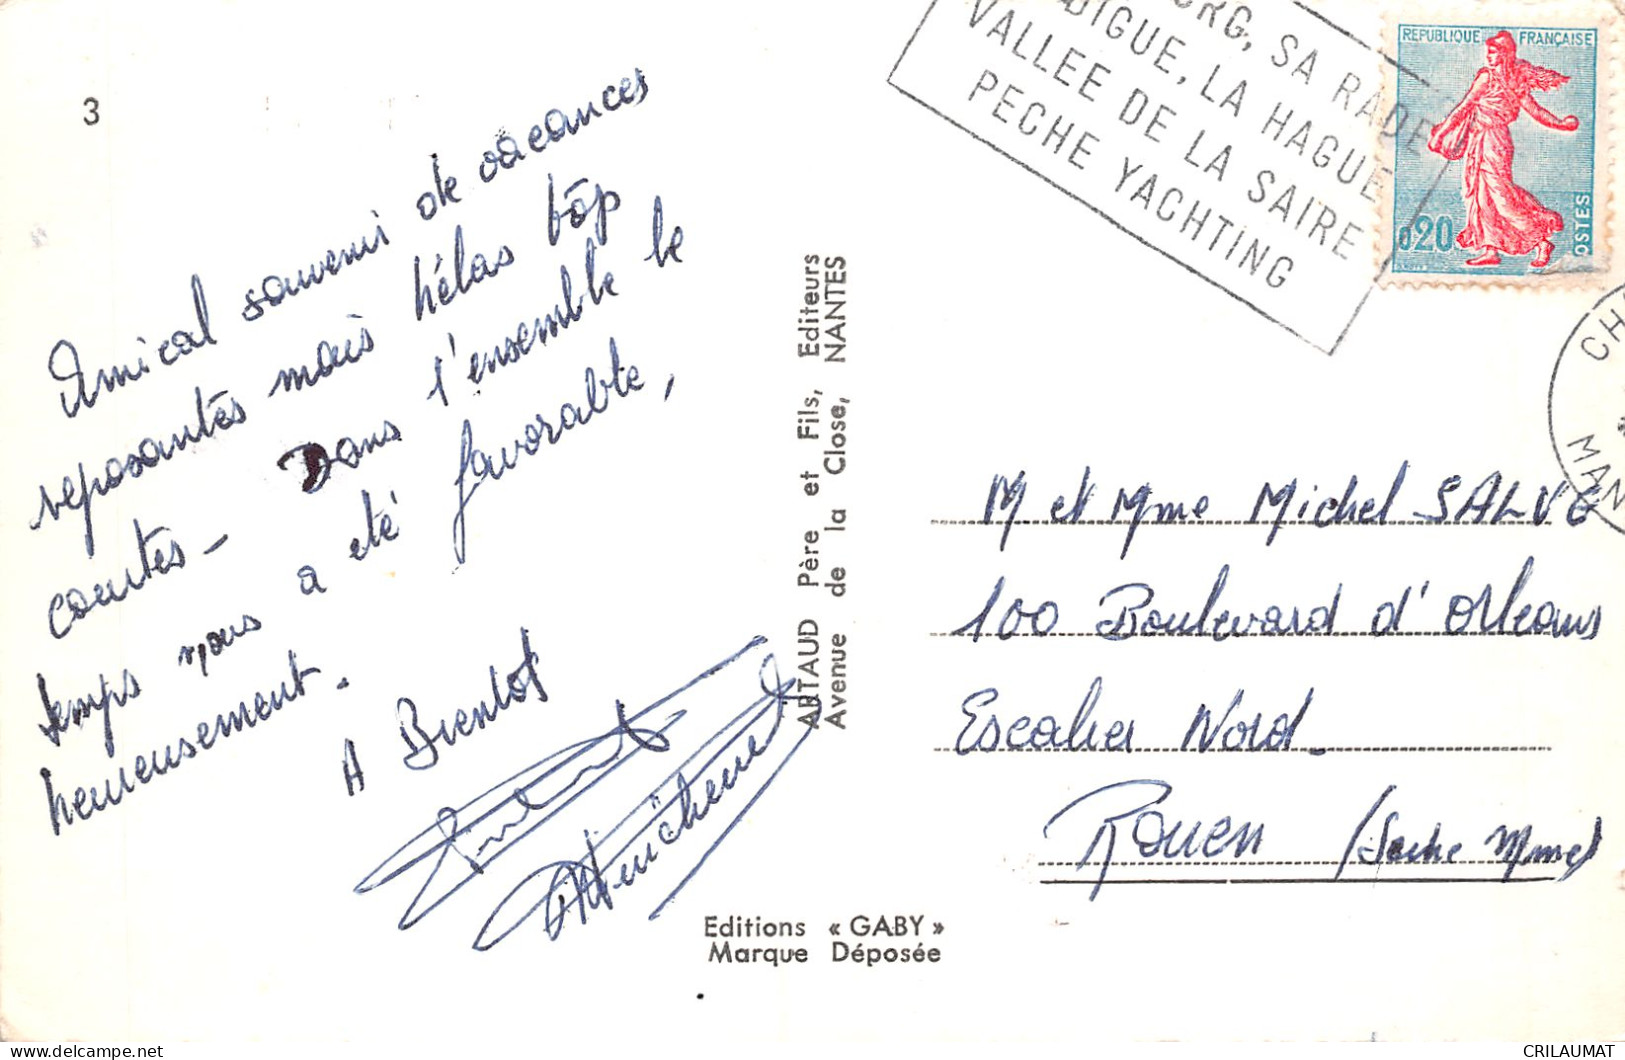 3
Amical souvenir de vacances
reposantes mais hélas trop
courtes - Dans l'ensemble le
temps nous a été favorable,
heureusement.
A Bientot
ARTAUD Père et Fils, Editeurs
Avenue de la Close, NANTES
Editions « GABY »
Marque Déposée
RG, SA RADE
DIGUE, LA HAGUE
VALLEE DE LA SAIRE
PECHE YACHTING
REPUBLIQUE FRANÇAISE
0,20
POSTES
CH
MAN
M et Mme Michel SALVE
100 Boulevard d'Orleans
Escalier Nord -
Rouen (Seine Mme)
CRILAUMAT